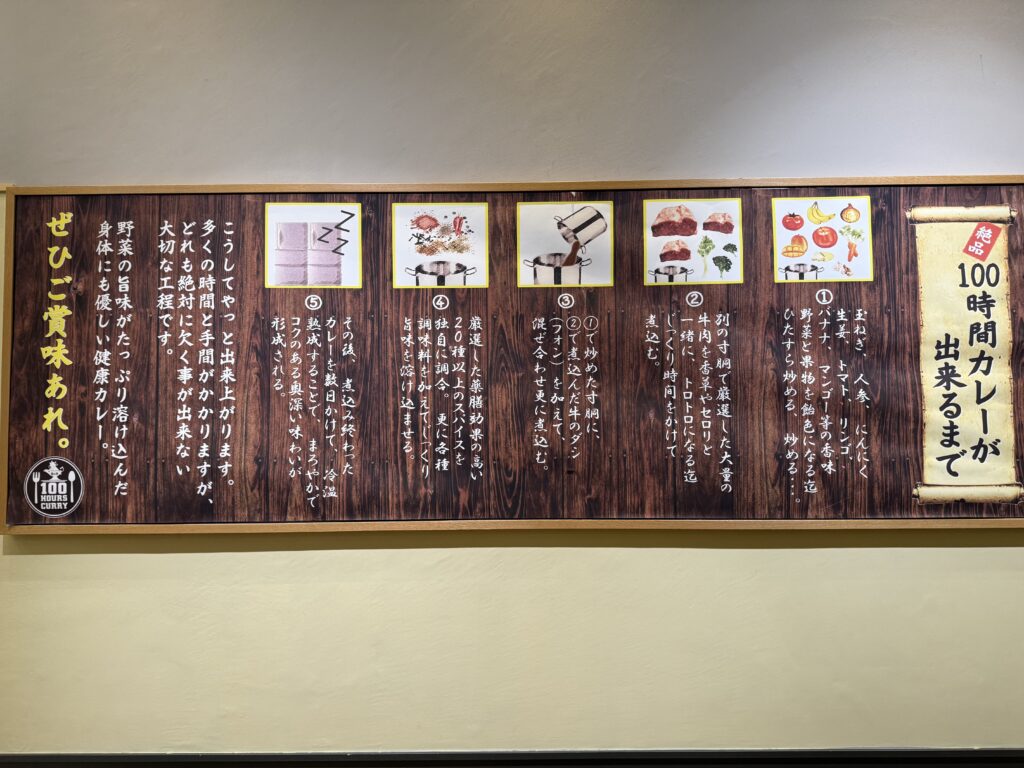 絶品
100時間カレーが
出来るまで
①
玉ねぎ、人参、にんにく
生姜、トマト、リンゴ、
バナナ、マンゴー、等の香味
野菜と果物を飴色になる迄
ひたすら炒める、炒める・・・
②
別の寸胴で厳選した大量の
牛肉を香草やセロリと
一緒に、トロトロになる迄
じっくり時間をかけて
煮込む。
③
①で炒めた寸胴に、
②で煮込んだ牛のダシ
(フォン)を加えて、
混ぜ合わせ更に煮込む。
④
厳選した薬膳効果の高い
20種以上のスパイスを
独自に調合。更に各種
調味料を加えてじっくり
旨味を溶け込ませる。
ZZZ
⑤
その後、煮込み終わった
カレーを数日かけて、冷温
熟成することで、まろやかで
コクのある奥深い味わいが
形成される。
こうしてやっと出来上がります。
多くの時間と手間がかかりますが、
どれも絶対に欠く事が出来ない
大切な工程です。
野菜の旨味がたっぷり溶け込んだ
身体にも優しい健康カレー。
ぜひご賞味あれ。
100
HOURS
CURRY